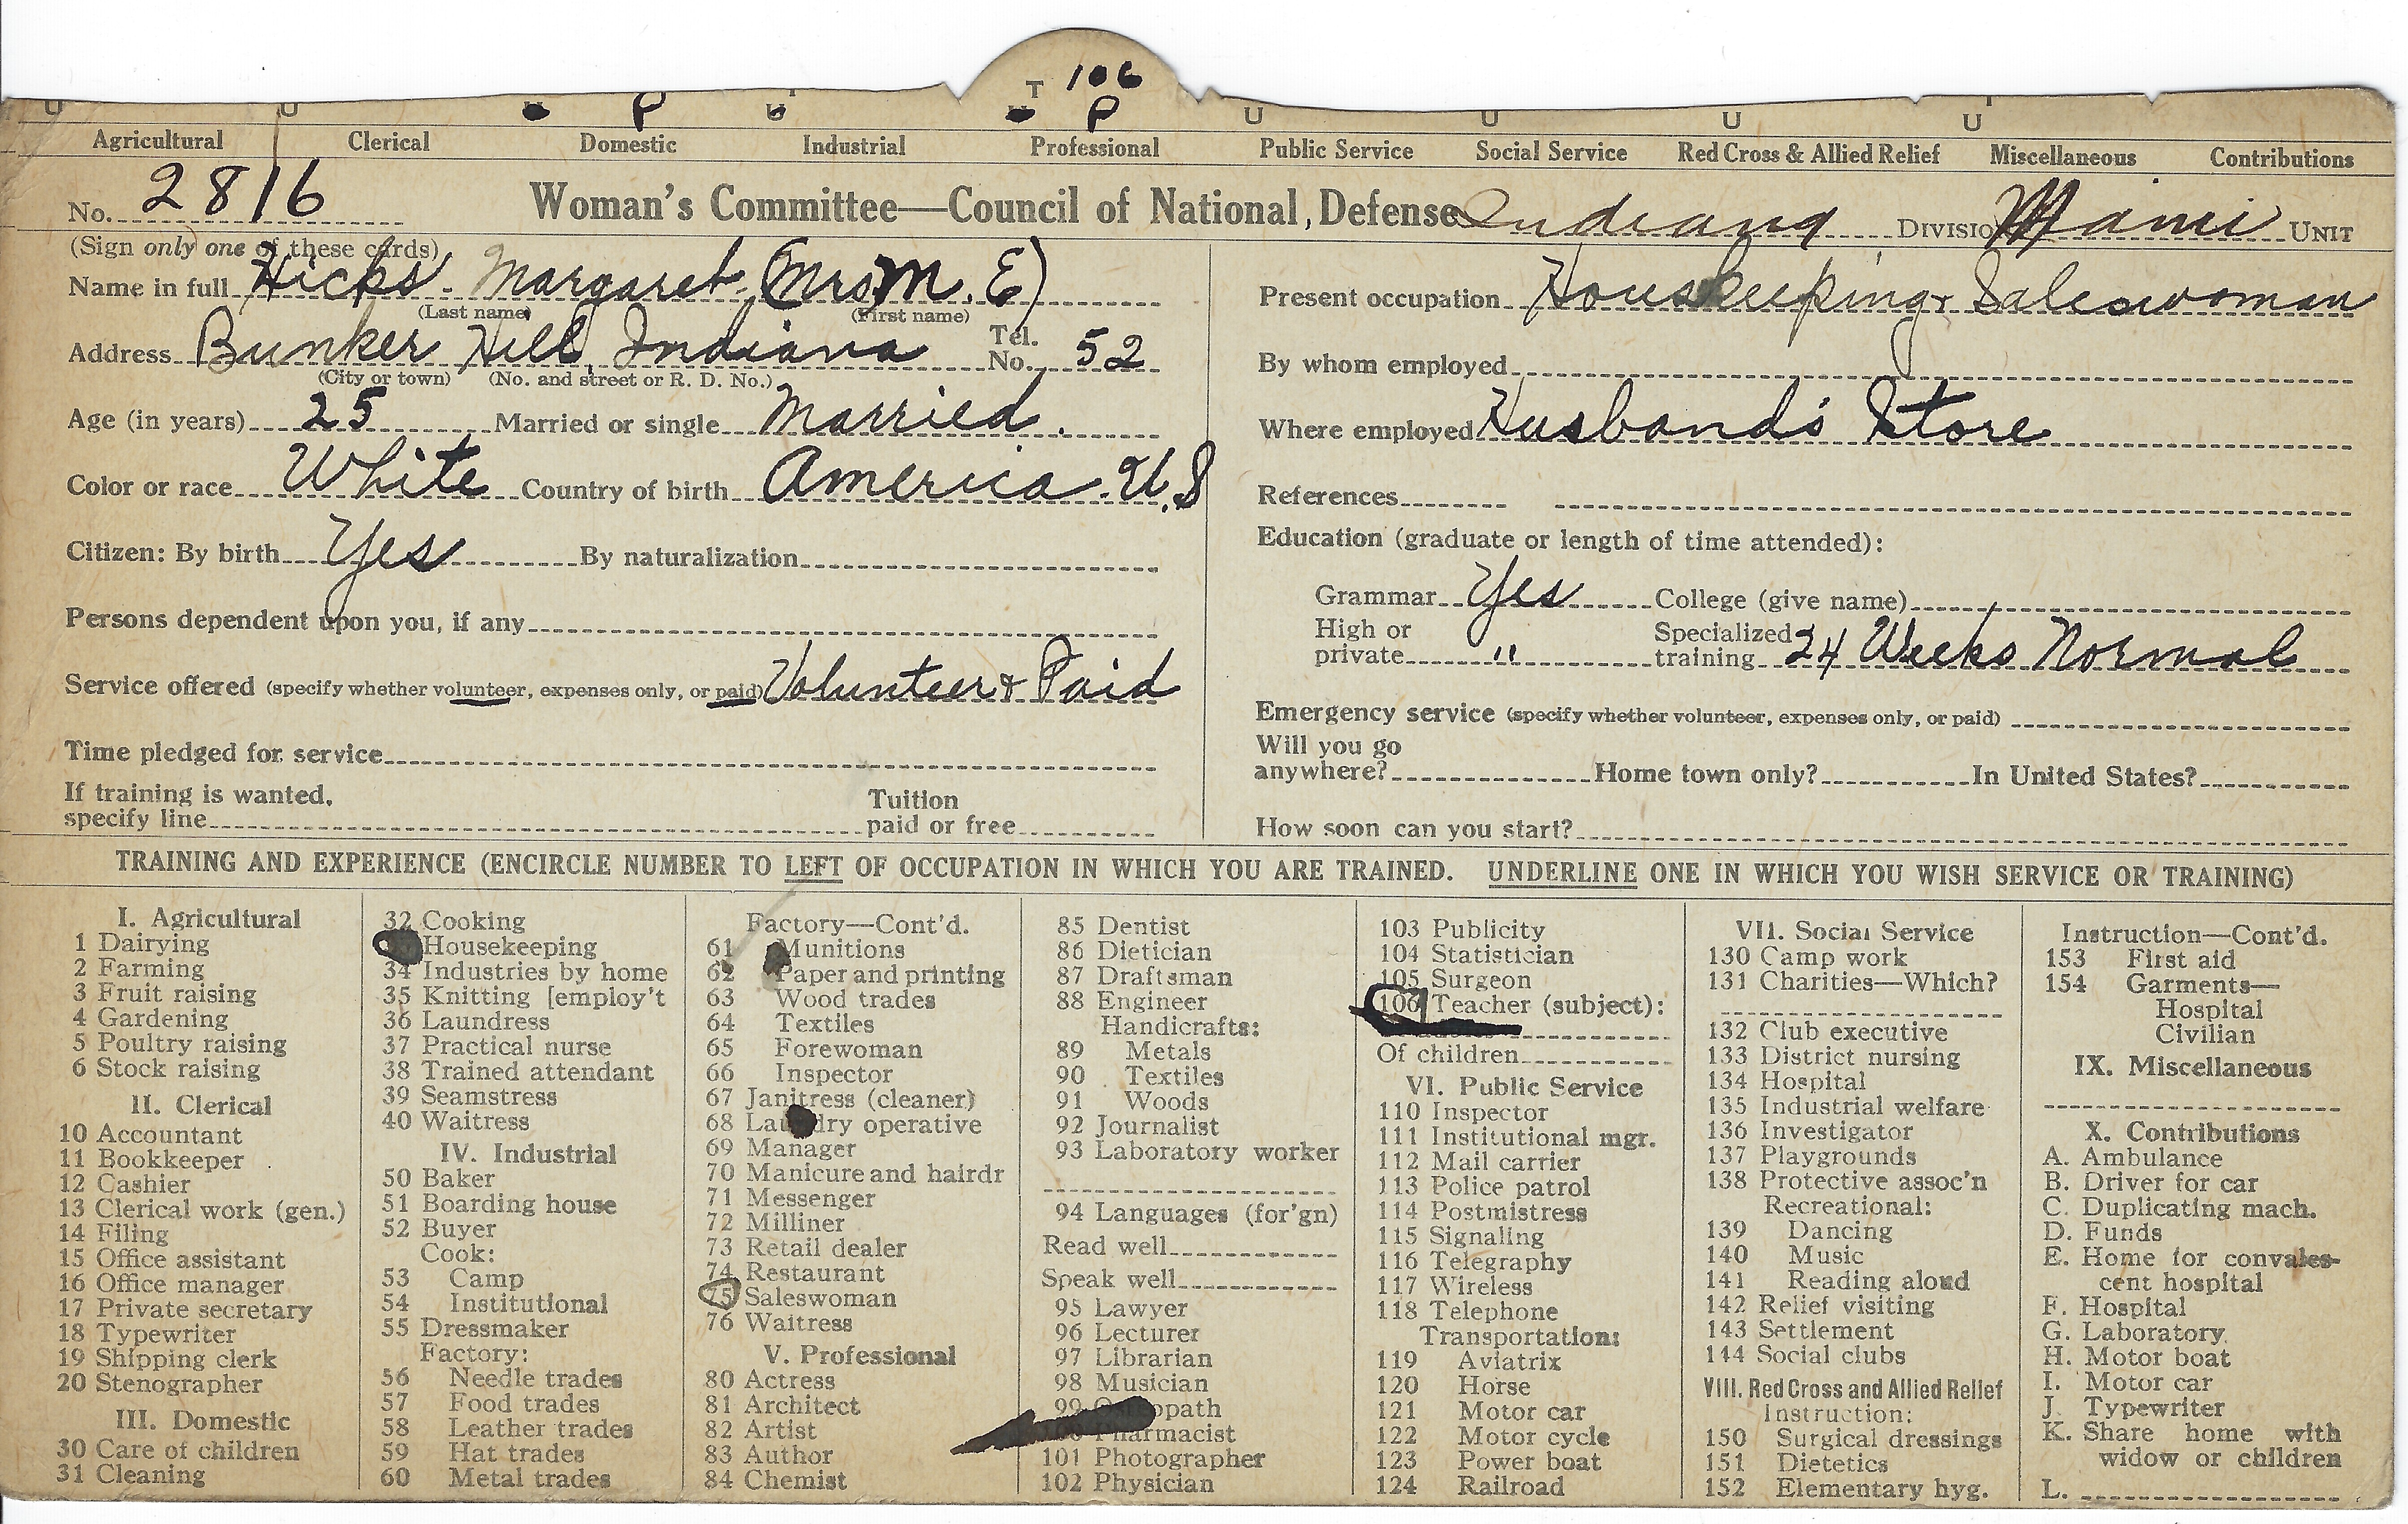 T 106
U U P U P U U U U
Agricultural Clerical Domestic Industrial Professional Public Service Social Service Red Cross & Allied Relief Miscellaneous Contributions
No. 2816 Woman's Committee—Council of National Defense Indiana DIVISION Mami UNIT
(Sign only one of these cards)
Name in full Hicks - Margaret (Mrs M. E)
(Last name) (First name)
Address Bunker Hill, Indiana Tel. No. 52
(City or town) (No. and street or R. D. No.)
Age (in years) 25 Married or single Married.
Color or race White Country of birth America. U.S
Citizen: By birth Yes By naturalization
Persons dependent upon you, if any
Service offered (specify whether volunteer, expenses only, or paid) Volunteer & Paid
Time pledged for service
If training is wanted, specify line Tuition paid or free
Present occupation Houskeeping & Saleswoman
By whom employed
Where employed Husband's Store
References
Education (graduate or length of time attended):
Grammar Yes College (give name)
High or private " Specialized training 24 Weeks Normal
Emergency service (specify whether volunteer, expenses only, or paid)
Will you go anywhere? Home town only? In United States?
How soon can you start?
TRAINING AND EXPERIENCE (ENCIRCLE NUMBER TO LEFT OF OCCUPATION IN WHICH YOU ARE TRAINED. UNDERLINE ONE IN WHICH YOU WISH SERVICE OR TRAINING)
I. Agricultural
1 Dairying
2 Farming
3 Fruit raising
4 Gardening
5 Poultry raising
6 Stock raising
II. Clerical
10 Accountant
11 Bookkeeper
12 Cashier
13 Clerical work (gen.)
14 Filing
15 Office assistant
16 Office manager
17 Private secretary
18 Typewriter
19 Shipping clerk
20 Stenographer
III. Domestic
30 Care of children
31 Cleaning
32 Cooking
Housekeeping
34 Industries by home
35 Knitting [employ't
36 Laundress
37 Practical nurse
38 Trained attendant
39 Seamstress
40 Waitress
IV. Industrial
50 Baker
51 Boarding house
52 Buyer
Cook:
53 Camp
54 Institutional
55 Dressmaker
Factory:
56 Needle trades
57 Food trades
58 Leather trades
59 Hat trades
60 Metal trades
Factory—Cont'd.
61 Munitions
62 Paper and printing
63 Wood trades
64 Textiles
65 Forewoman
66 Inspector
67 Janitress (cleaner)
68 Laundry operative
69 Manager
70 Manicure and hairdr
71 Messenger
72 Milliner
73 Retail dealer
74 Restaurant
75 Saleswoman
76 Waitress
V. Professional
80 Actress
81 Architect
82 Artist
83 Author
84 Chemist
85 Dentist
86 Dietician
87 Draftsman
88 Engineer
Handicrafts:
89 Metals
90 Textiles
91 Woods
92 Journalist
93 Laboratory worker
94 Languages (for'gn)
Read well
Speak well
95 Lawyer
96 Lecturer
97 Librarian
98 Musician
99 Osteopath
100 Pharmacist
101 Photographer
102 Physician
103 Publicity
104 Statistician
105 Surgeon
106 Teacher (subject):
Of children
VI. Public Service
110 Inspector
111 Institutional mgr.
112 Mail carrier
113 Police patrol
114 Postmistress
115 Signaling
116 Telegraphy
117 Wireless
118 Telephone
Transportation:
119 Aviatrix
120 Horse
121 Motor car
122 Motor cycle
123 Power boat
124 Railroad
VII. Social Service
130 Camp work
131 Charities—Which?
132 Club executive
133 District nursing
134 Hospital
135 Industrial welfare
136 Investigator
137 Playgrounds
138 Protective assoc'n
Recreational:
139 Dancing
140 Music
141 Reading aloud
142 Relief visiting
143 Settlement
144 Social clubs
VIII. Red Cross and Allied Relief
Instruction:
150 Surgical dressings
151 Dietetics
152 Elementary hyg.
Instruction—Cont'd.
153 First aid
154 Garments—
Hospital
Civilian
IX. Miscellaneous
X. Contributions
A. Ambulance
B. Driver for car
C. Duplicating mach.
D. Funds
E. Home for convales-
cent hospital
F. Hospital
G. Laboratory
H. Motor boat
I. Motor car
J. Typewriter
K. Share home with
widow or children
L.